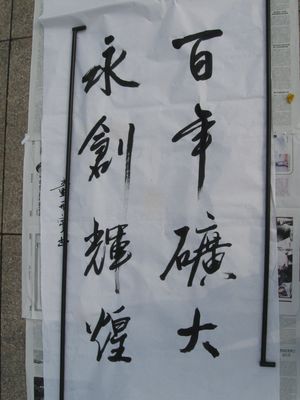 百年礦大
永創輝煌